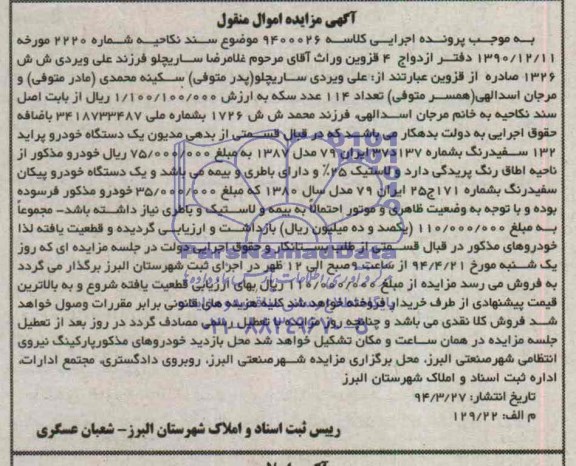 آگهی مزایده اموال منقول
به موجب پرونده اجرایی کلاسه ۹۴۰۰۰۲۶ موضوع سند نکاحیه شماره ۲۲۲۰ مورخه
۱۳۹۰/۱۲/۱۱ دفتر ازدواج ۴ قزوین وراث آقای مرحوم غلامرضا ساریچلو فرزند علی ویردی ش ش
۱۳۲۶ صادره از قزوین عبارتند از: علی ویردی ساریچلو(پدر متوفی) سکینه محمدی (مادر متوفی) و
مرجان اسدالهی(همسر متوفی) تعداد ۱۱۴ عدد سکه به ارزش ۱/۱۰۰/۱۰۰/۰۰۰ ریال از بابت اصل
سند نکاحیه به خانم مرجان اسدالهی، فرزند محمد ش ش ۱۷۲۶ بشماره ملی ۳۴۱۸۷۳۳۴۸۷ باضافه
حقوق اجرایی به دولت بدهکار می باشند که در قبال قسمتی از بدهی مدیون یک دستگاه خودرو پراید
۱۳۲ سفیدرنگ بشماره ۳۷۳۱۳۷ ایران ۷۹ مدل ۱۳۸۷ به مبلغ ۷۵/۰۰۰/۰۰۰ ریال خودرو مذکور از
ناحیه اطاق رنگ پریدگی دارد و لاستیک ۲۵٪ و دارای باطری و بیمه می باشد و یک دستگاه خودرو پیکان
سفیدرنگ بشماره ۱۷۱ج۲۵ ایران ۷۹ مدل سال ۱۳۸۰ که مبلغ ۳۵/۰۰۰/۰۰۰ خودرو مذکور فرسوده
بوده و با توجه به وضعیت ظاهری و موتور احتمالا به بیمه و لاستیک و باطری نیاز داشته باشد- مجموعاً
به مبلغ ۱۱۰/۰۰۰/۰۰۰ (یکصد و ده میلیون ریال) بازداشت و ارزیابی گردیده و قطعیت یافته لذا
خودروهای مذکور در قبال قسمتی از طلب بستانکار و حقوق اجرایی دولت در جلسه مزایده ای که روز
یک شنبه مورخ ۹۴/۴/۲۱ از ساعت ۹ صبح الی ۱۲ ظهر در اجرای ثبت شهرستان البرز برگذار می گردد
به فروش می رسد مزایده از مبلغ ریال بهای ارزیابی قطعیت یافته شروع و به بالاترین
قیمت پیشنهادی از طرف خریدار فروخته خواهد شد کلیه هزینه های قانونی برابر مقررات وصول خواهد
شد فروش کلا نقدی می باشد و چنانچه روز مزایده با تعطیل رسمی مصادف گردد در روز بعد از تعطیل
جلسه مزایده در همان ساعت و مکان تشکیل خواهد شد محل بازدید خودروهای مذکور پارکینگ نیروی
انتظامی شهرصنعتی البرز، محل برگزاری مزایده شهرصنعتی البرز، روبروی دادگستری، مجتمع ادارات،
اداره ثبت اسناد و املاک شهرستان البرز
تاریخ انتشار: ۹۴/۳/۲۷
م الف: ۱۲۹/۲۲
رییس ثبت اسناد و املاک شهرستان البرز- شعبان عسگری
ParsNamadData